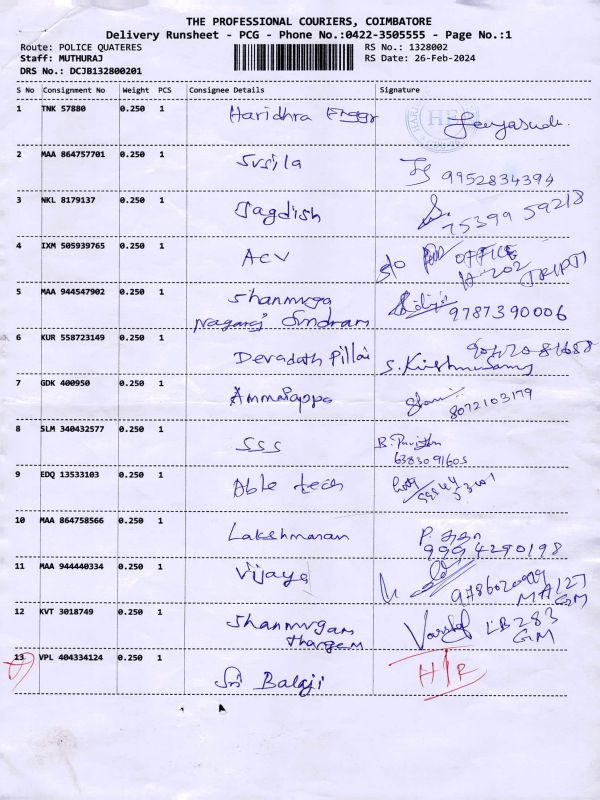 THE PROFESSIONAL COURIERS, COIMBATORE
Delivery Runsheet - PCG - Phone No.:0422-3505555 - Page No.:1
Route: POLICE QUATERES
RS No.: 1328002
Staff: MUTHURAJ
RS Date: 26-Feb-2024
DRS No.: DCJB132800201
S No Consignment No Weight PCS Consignee Details Signature
1 TNK 57880 0.250 1 Haridhra Enggr
2 MAA 864757701 0.250 1 Susila
9952834394
3 NKL 8179137 0.250 1 Jagdish
75399 59218
4 IXM 505939765 0.250 1 ACV
OFFICE
H-202 TRIPTI
5 MAA 944547902 0.250 1 Shanmuga
Nagaraj Sundram
9787390006
6 KUR 558723149 0.250 1 Devadath Pillai
S. Krishnusamy
7 GDK 400950 0.250 1 Ammaiappa
8072103179
8 SLM 340432577 0.250 1 SSS
6383091605
9 EDQ 13533103 0.250 1 Able tech
10 MAA 864758566 0.250 1 Lakshmanan
9994290198
11 MAA 944440334 0.250 1 Vijaya
MA127
GM
12 KVT 3018749 0.250 1 Shanmugam
thangam
LB283
GM
13 VPL 404334124 0.250 1 Sri Balaji
H/R